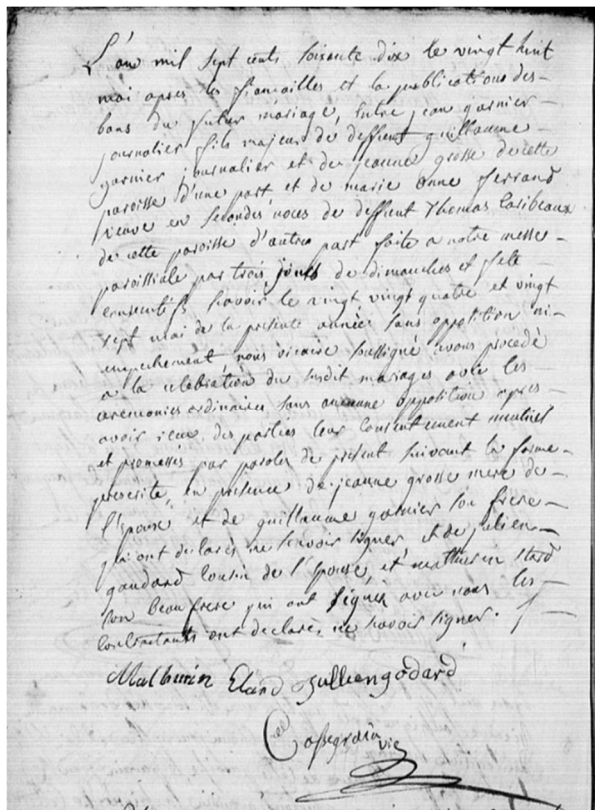 L'an mil sept cents soixante dix le vingt huit
mai apres les fiancailles et la publications des-
bans du futur mariage, entre jean garnier-
journalier fils majeur de deffunt guillaume-
garnier journalier et de jeanne grosse de cette
paroisse d'une part et de marie anne ferrand
veuve en secondes noces de deffunt Thomas
de cette paroisse d'autre part faite a notre messe-
paroissiale par trois jours de dimanches et fete-
consecutifs scavoir le vingt vingt quatre et vingt
sept mai de la presente année sans opposition ni-
empechement nous vicaire soussigné avons procedé
a la celebration du susdit mariages avec les-
ceremonies ordinaires sans aucunne opposition apres-
avoir receu des parties leur consentement mutuel
et promesses par paroles de present suivant la forme-
prescrite, en presence de jeanne grosse mere de-
l'epoux et de guillaume garnier son frere-
qui ont declarés ne scavoir signer et de julien-
gaudard cousin de l'epouse, et mathurin
son beaufrere qui ont signés avec nous les-
contractants ont declarés ne scavoir signer.
Mathurin Julliengodard
vic